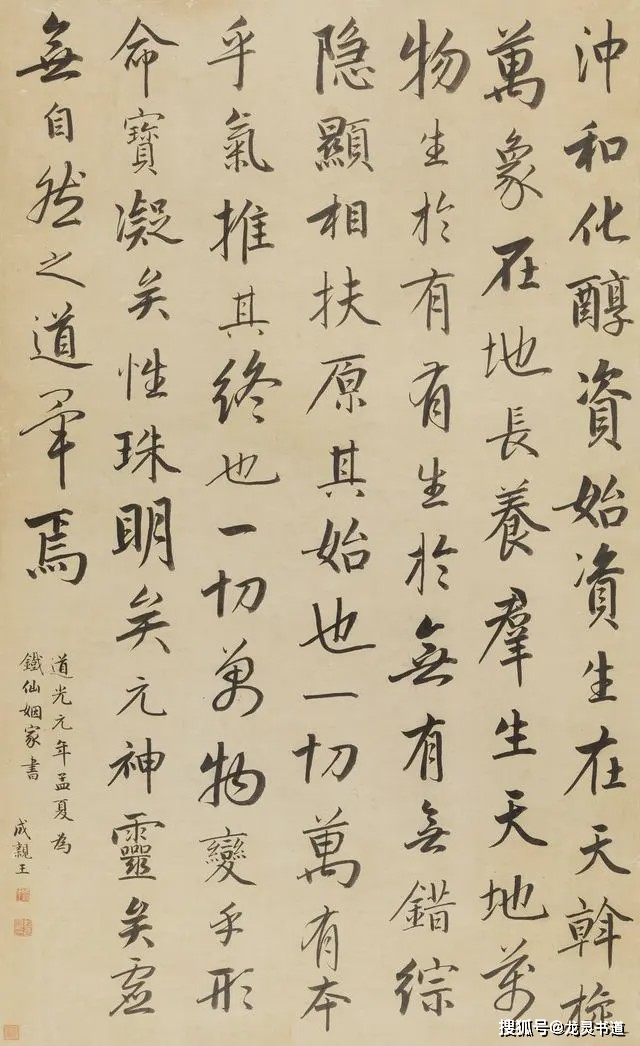 沖和化醇資始資生在天斡旋
萬象在地長養羣生天地萬
物生於有有生於無有無錯綜
隐顯相扶原其始也一切萬有本
乎氣推其終也一切萬物變乎形
命寶凝矣性珠明矣元神靈矣虛
無自然之道畢焉
道光元年孟夏為
鐵仙姻家書
成親王
搜狐号@龙灵书道